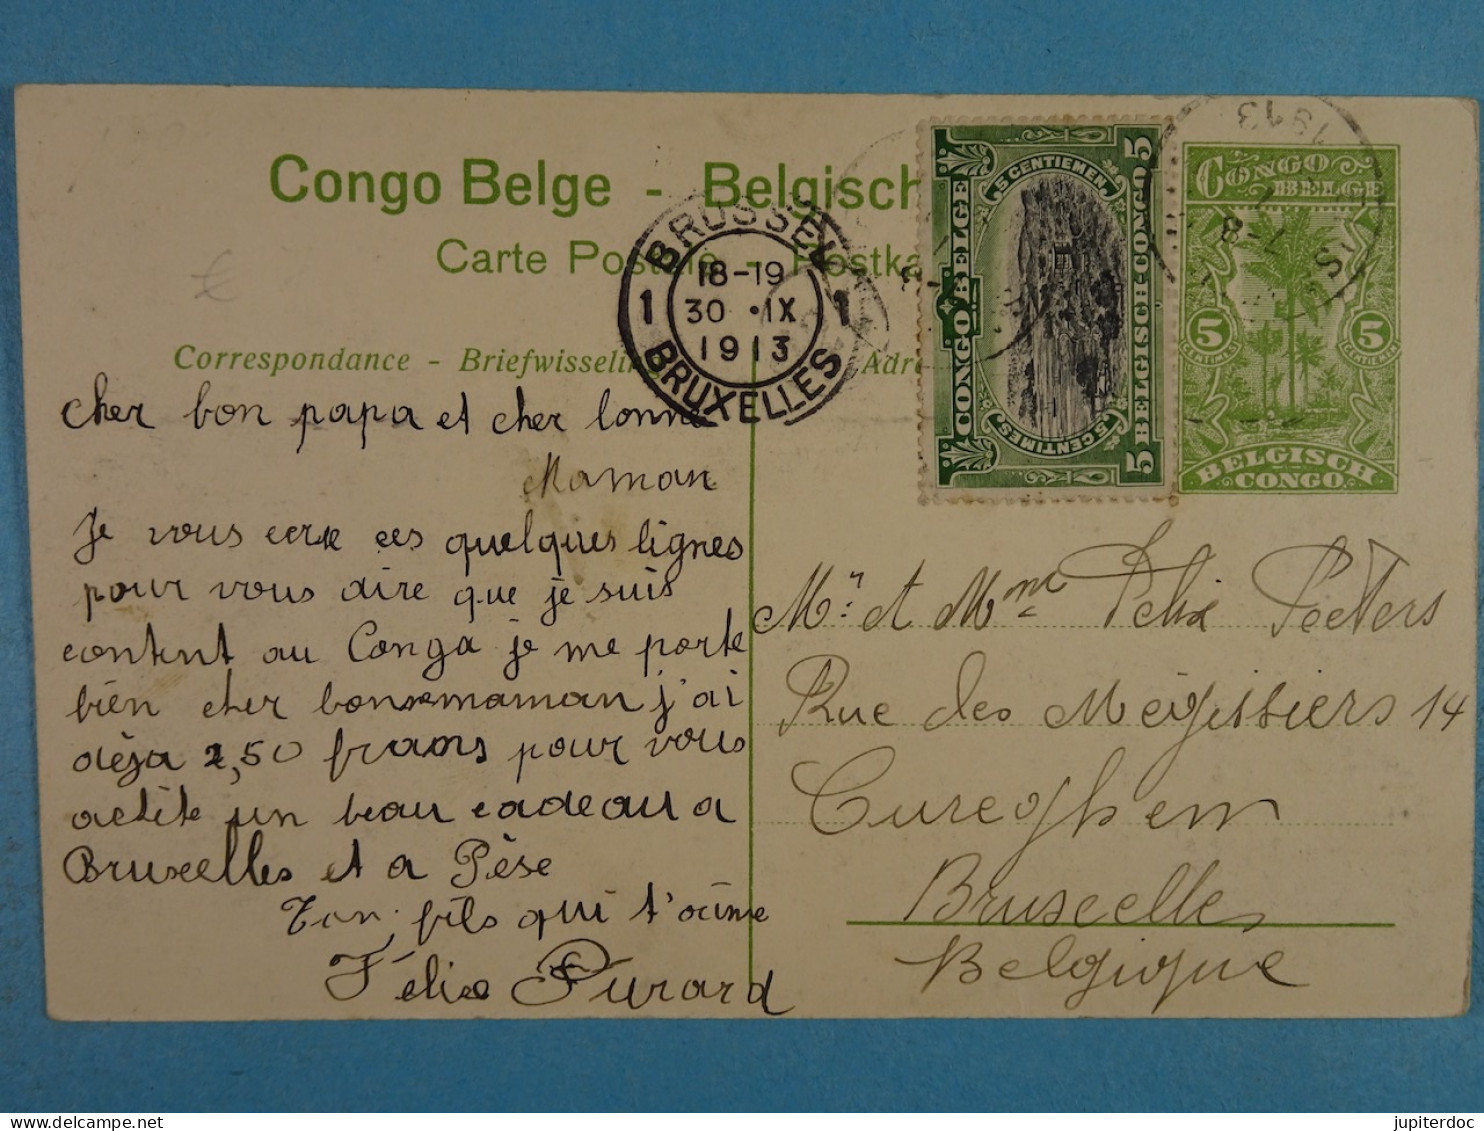 Congo Belge - Belgisch
Carte Postale - Postka
Correspondance - Briefwisselin
Adre
BRUSSEL
18-19
30 • IX
1913
1 1
BRUXELLES
1913
7-8
5 CENTIEMEN 5
CONGO BELGE
BELGISCH-CONGO
5 CENTIMES 5
CONGO BELGE
5 CENTIMES
5 CENTIEMEN
BELGISCH CONGO
cher bon papa et cher bonne
Maman
Je vous ecrie ces quelques lignes
pour vous dire que je suis
content au Conga je me porte
bien cher bonnemaman j'ai
déja 2,50 frans pour vous
achte un beau cadeau a
Bruxelles et a Pése
Ton fils qui t'aime
Félix Purard
Mr. et Mme Felix Peeters
Rue des Mégissiers 14
Cureghem
Bruxelles
Belgique
jupiterdoc